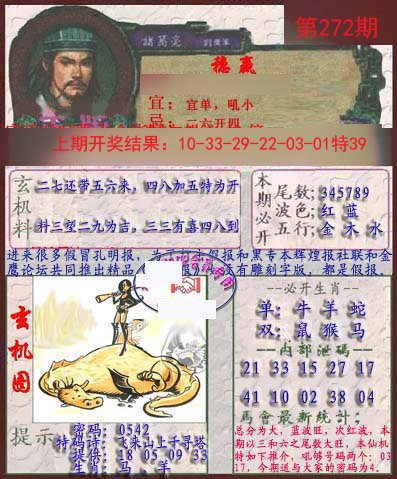 第272期
諸葛亮
劉備軍
稳赢
宜；宜单，吼小
忌：二六开四
上期开奖结果：10-33-29-22-03-01特39
玄机料
二七还带五六来，四八加五特为开
料三望二九为吉，三三有喜四八到
本期必开
尾数;345789
波色;红 蓝
五行;金木水
进来很多假冒孔明报，为
假报和黑专本辉煌报社联和金
鹰论坛共同推出精品
有雕刻字版，都是假报。
玄机图
--必开生肖--
单: 牛 羊 蛇
双: 鼠 猴 马
--内部泄碼--
21 33 15 27 17
41 10 02 38 04
马會最新統计;
总分为大，蓝波旺，次红波，本
期以三和六之尾数大旺，本仙机
特如下推介，吼够号码两个：03
17，今期送与大家的密码为4.
提示
密码: 0542
特码诗: 飞来山上千寻塔
提供: 18 05 09 33
生肖: 马 、羊